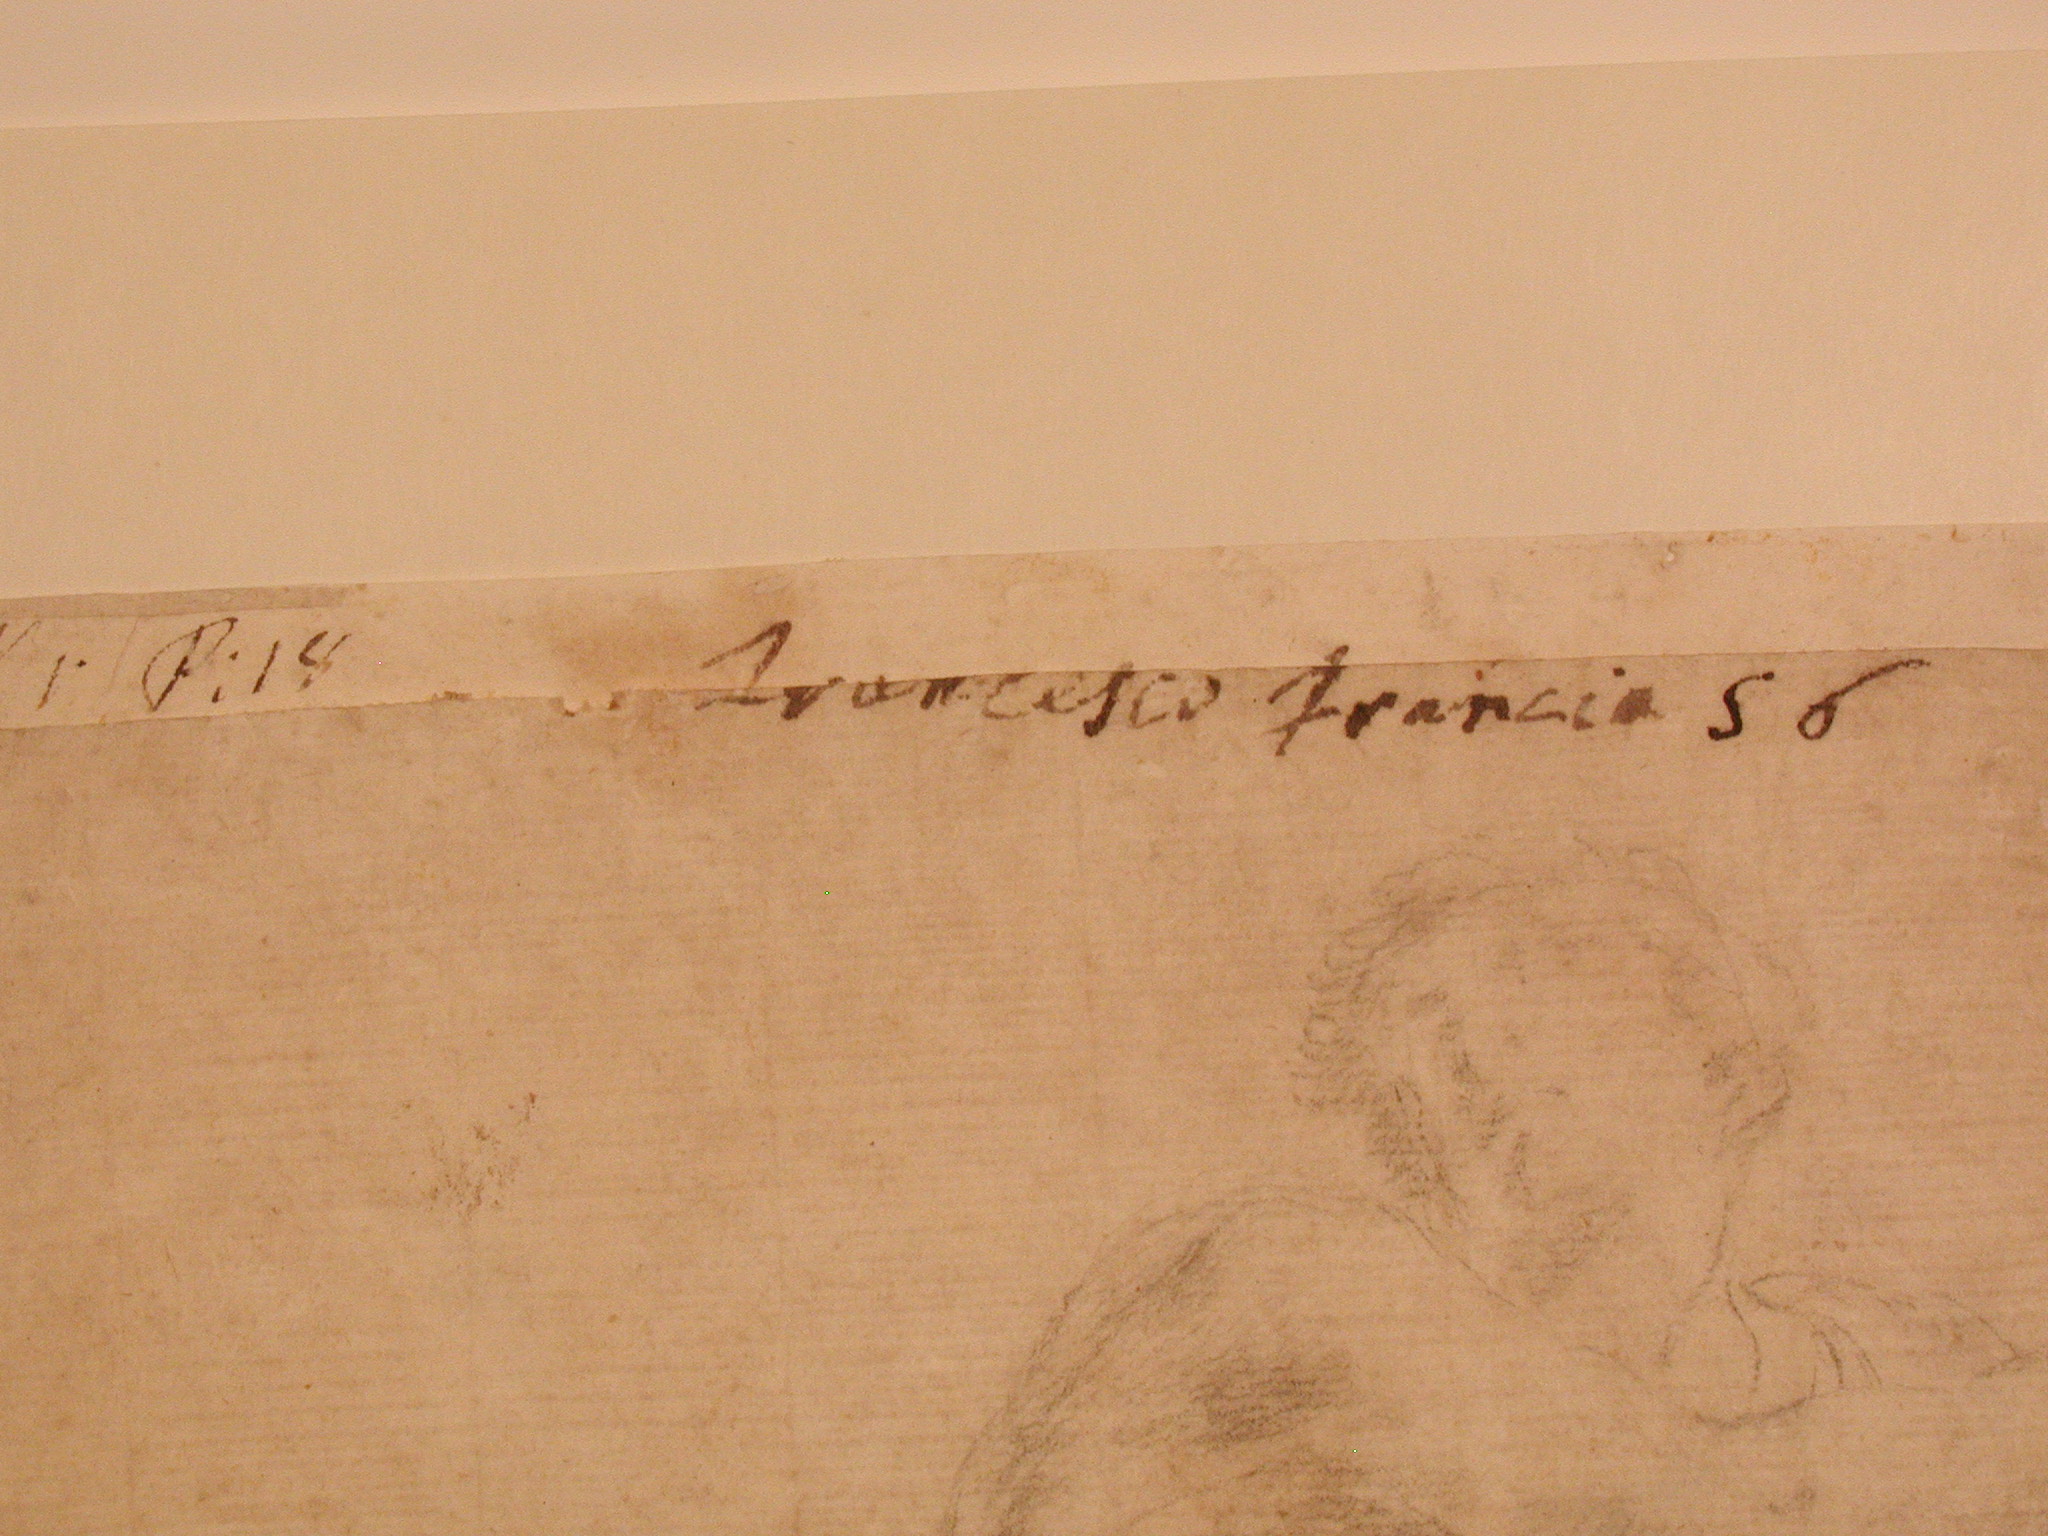 1. P: 18
francesco francia 56